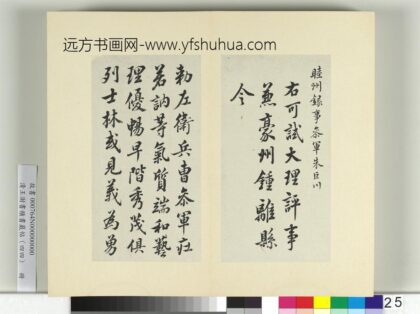 远方书画网-www.yfshuhua.com
睦州錄事參軍朱巨川
右可試大理評事
兼豪州鍾離縣
令
勅左衛兵曹參軍莊
若訥等氣質端和藝
理優暢早階秀茂俱
列士林或見義為勇
25